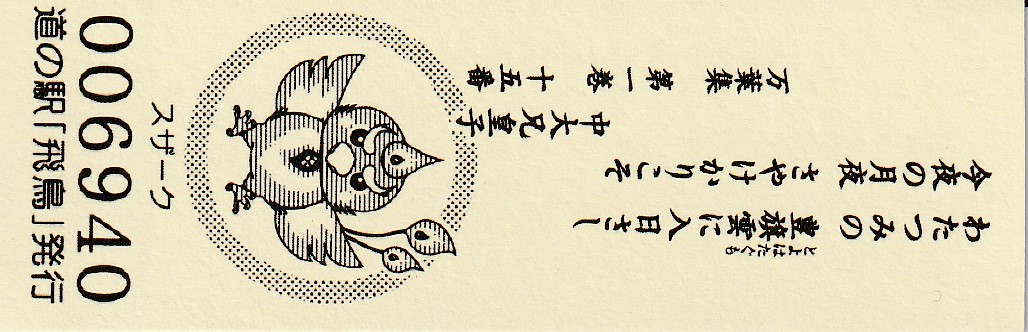 とよはたくも
わたつみの 豊旗雲に入日さし
今夜の月夜 さやけかりこそ
中大兄皇子
万葉集 第一巻 十五番
スザーク
006940
道の駅「飛鳥」発行